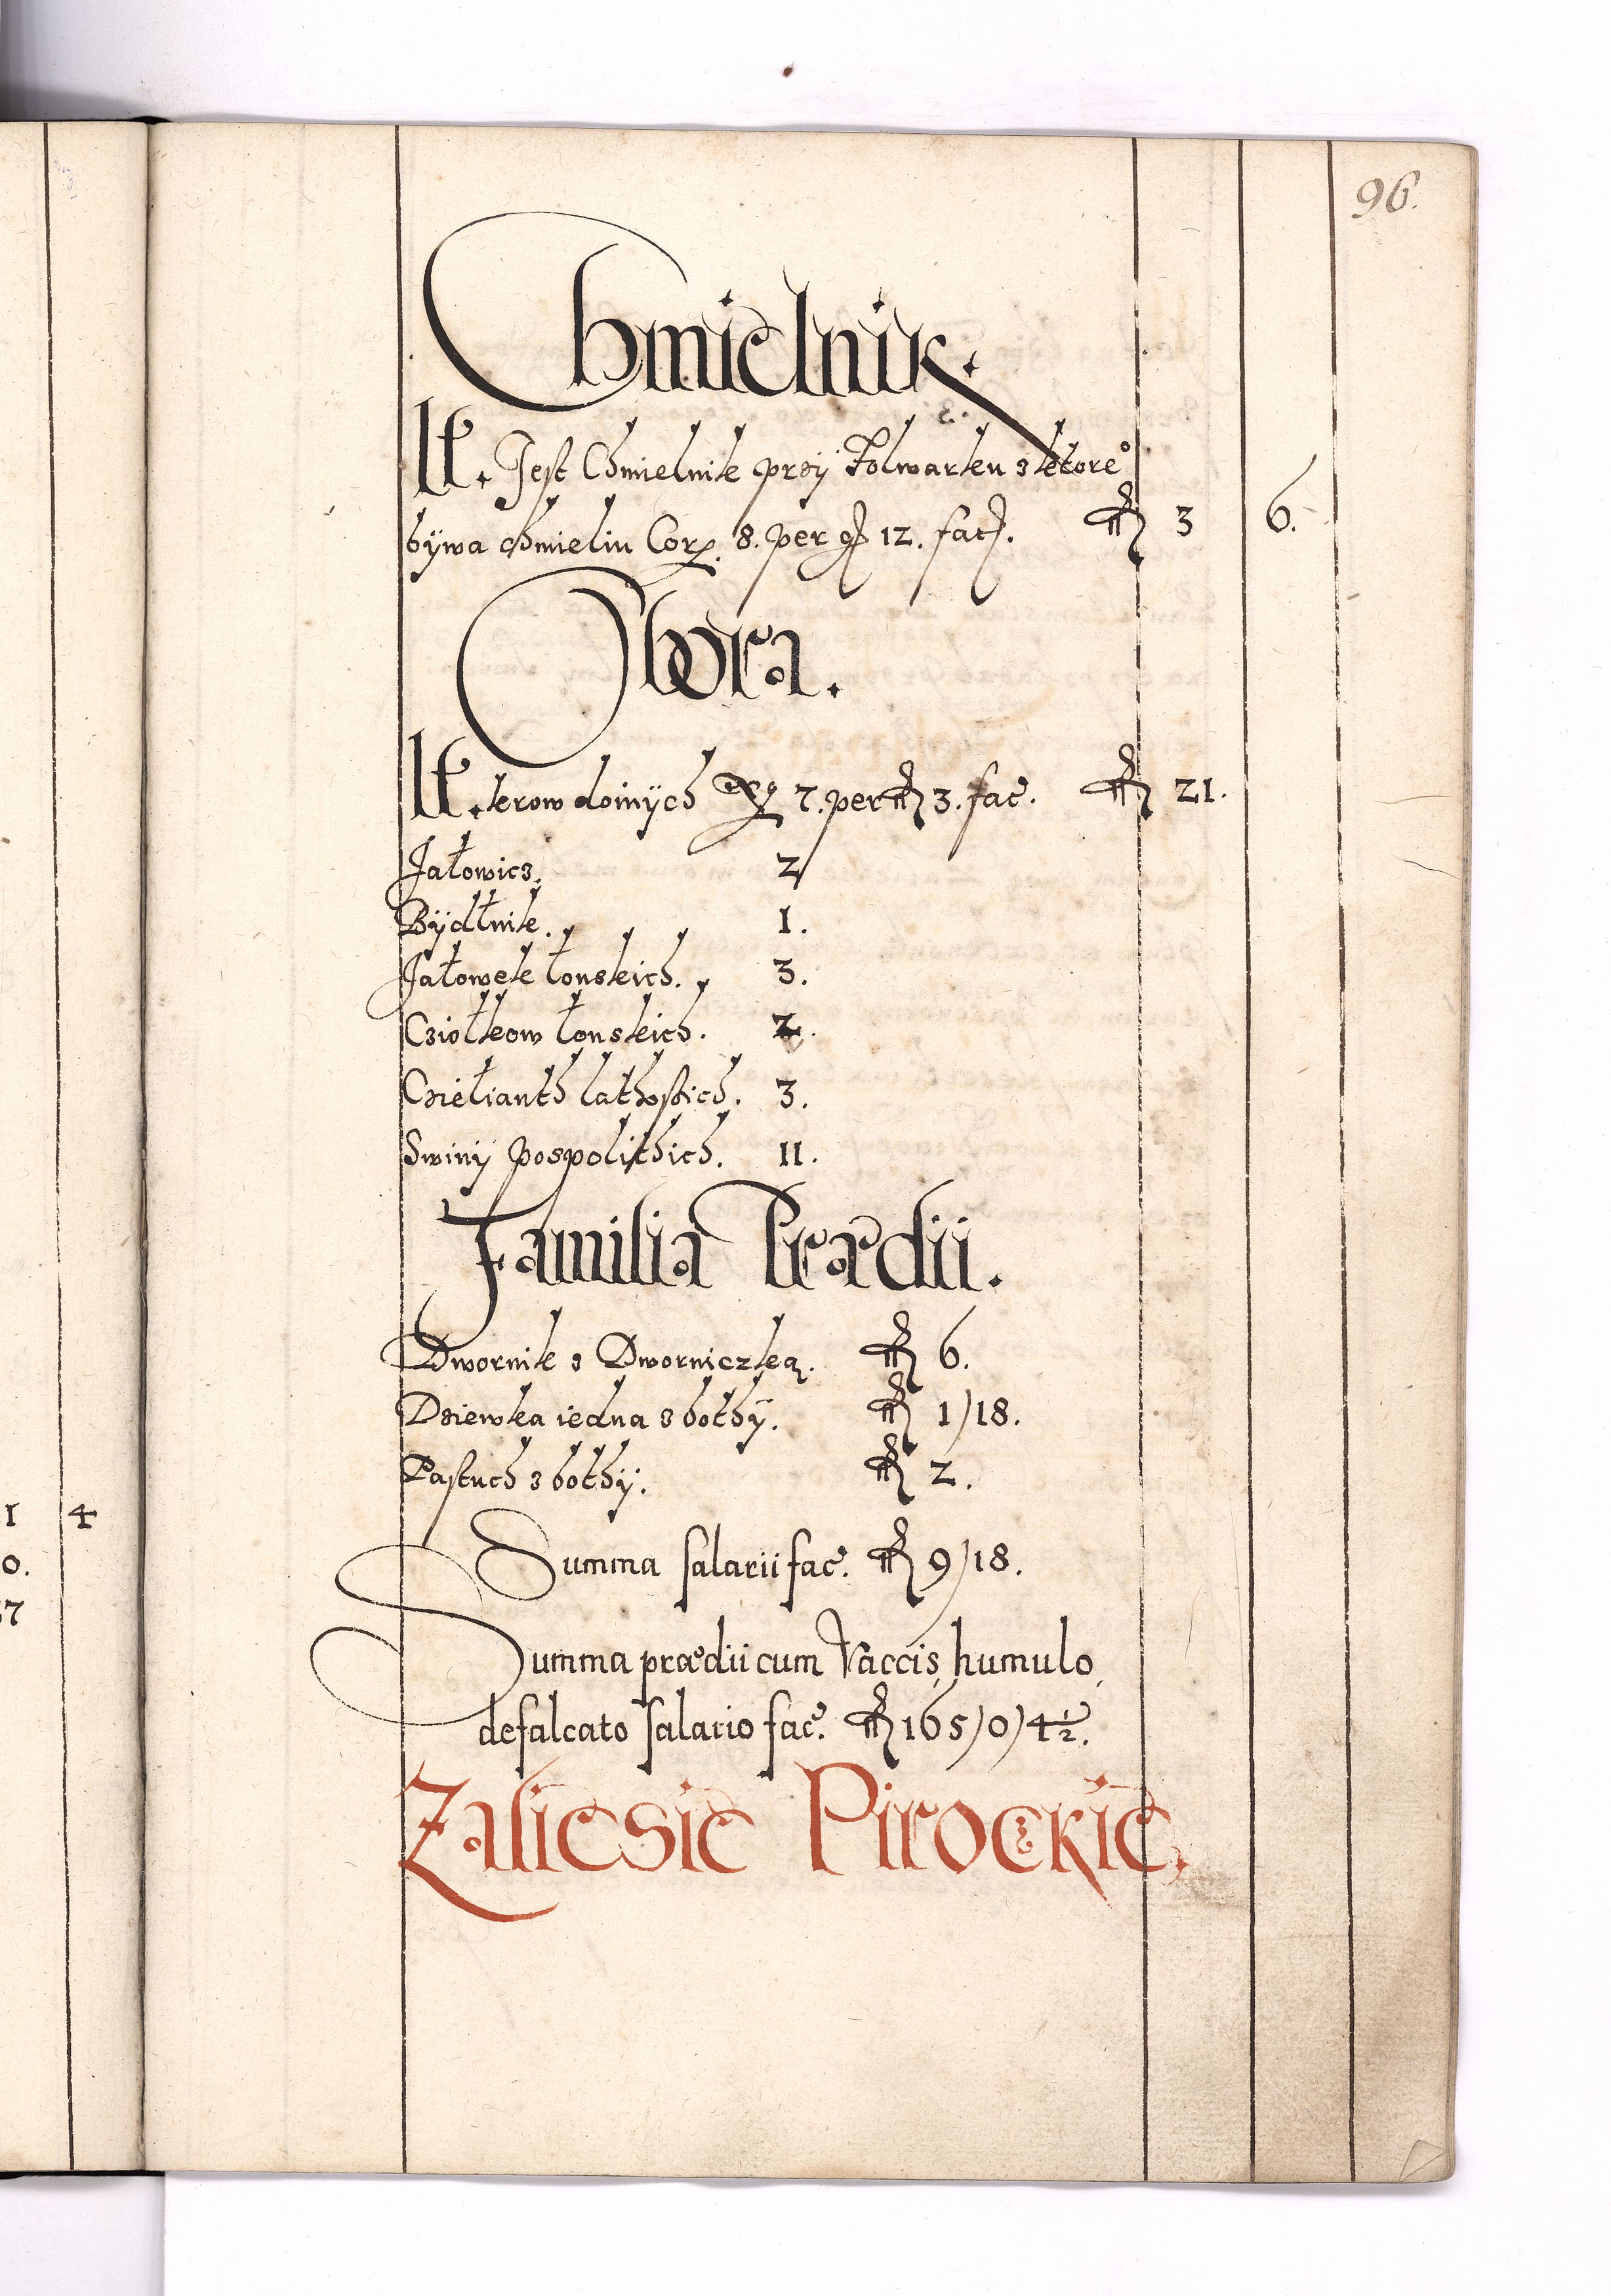 96.
Chmielnik.
It. Jest Chmielnik przÿ Folwarku z ktore°
bÿwa chmieliu Cor. 8. per gr 12. facit. fl 3 6.
Obora.
It. krow doinÿch 7. per fl 3. fac. fl 21.
Jałowicz. 2
Bÿdłnik. 1.
Jałowek łonskich. 3.
Cziołkow łonskich. 2.
Czieliąnth lathosich. 3.
Swinÿ pospolithich. 11.
Familia Prædii.
Dwornik z Dworniczką. fl 6.
Dziewka iedna z bothÿ. fl 1/18.
Pastuch z bothÿ. fl 2.
Summa salarii fac. fl 9/18.
Summa prædii cum Vaccis, humulo,
defalcato salario fac. fl 165/0/4½.
Zaliesie Pirockie.
1 4
0.
7